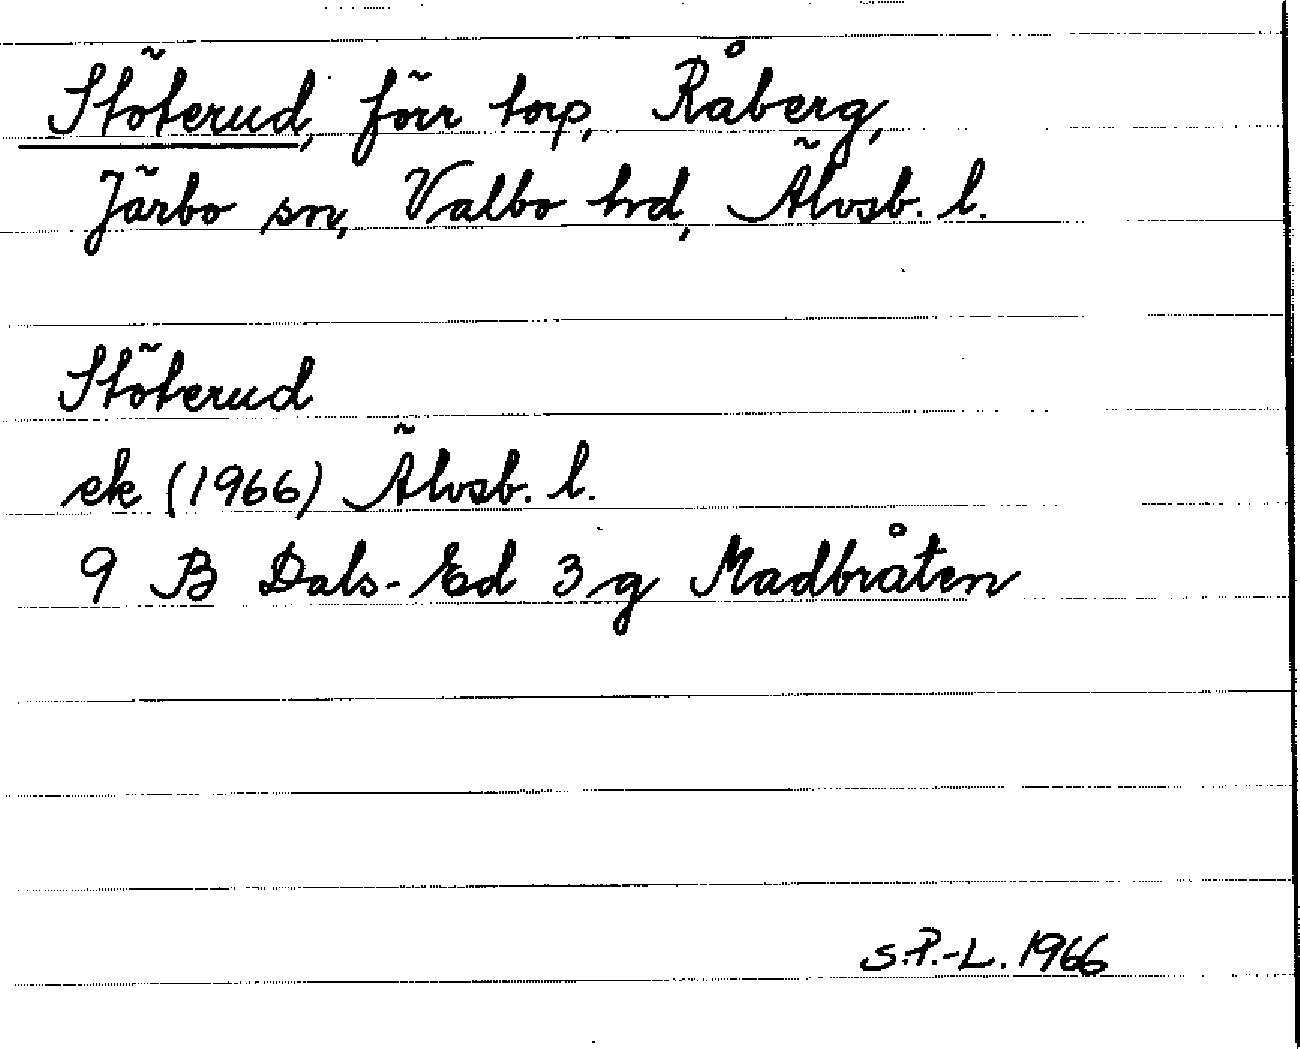 Stöterud, förr torp, Råberg,
Järbo sn, Valbo hrd, Älvsb. l.
Stöterud
ek (1966) Älvsb. l.
9 B Dals-Ed 3 g Madbråten
S.P.-L. 1966